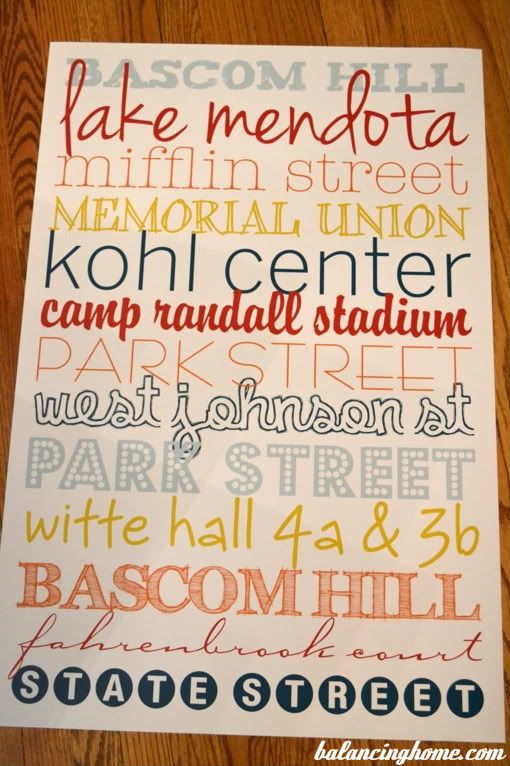 BASCOM HILL
lake mendota
mifflin street
MEMORIAL UNION
kohl center
camp randall stadium
PARK STREET
west johnson st
PARK STREET
witte hall 4a & 3b
BASCOM HILL
fahrenbrook court
STATE STREET
balancinghome.com